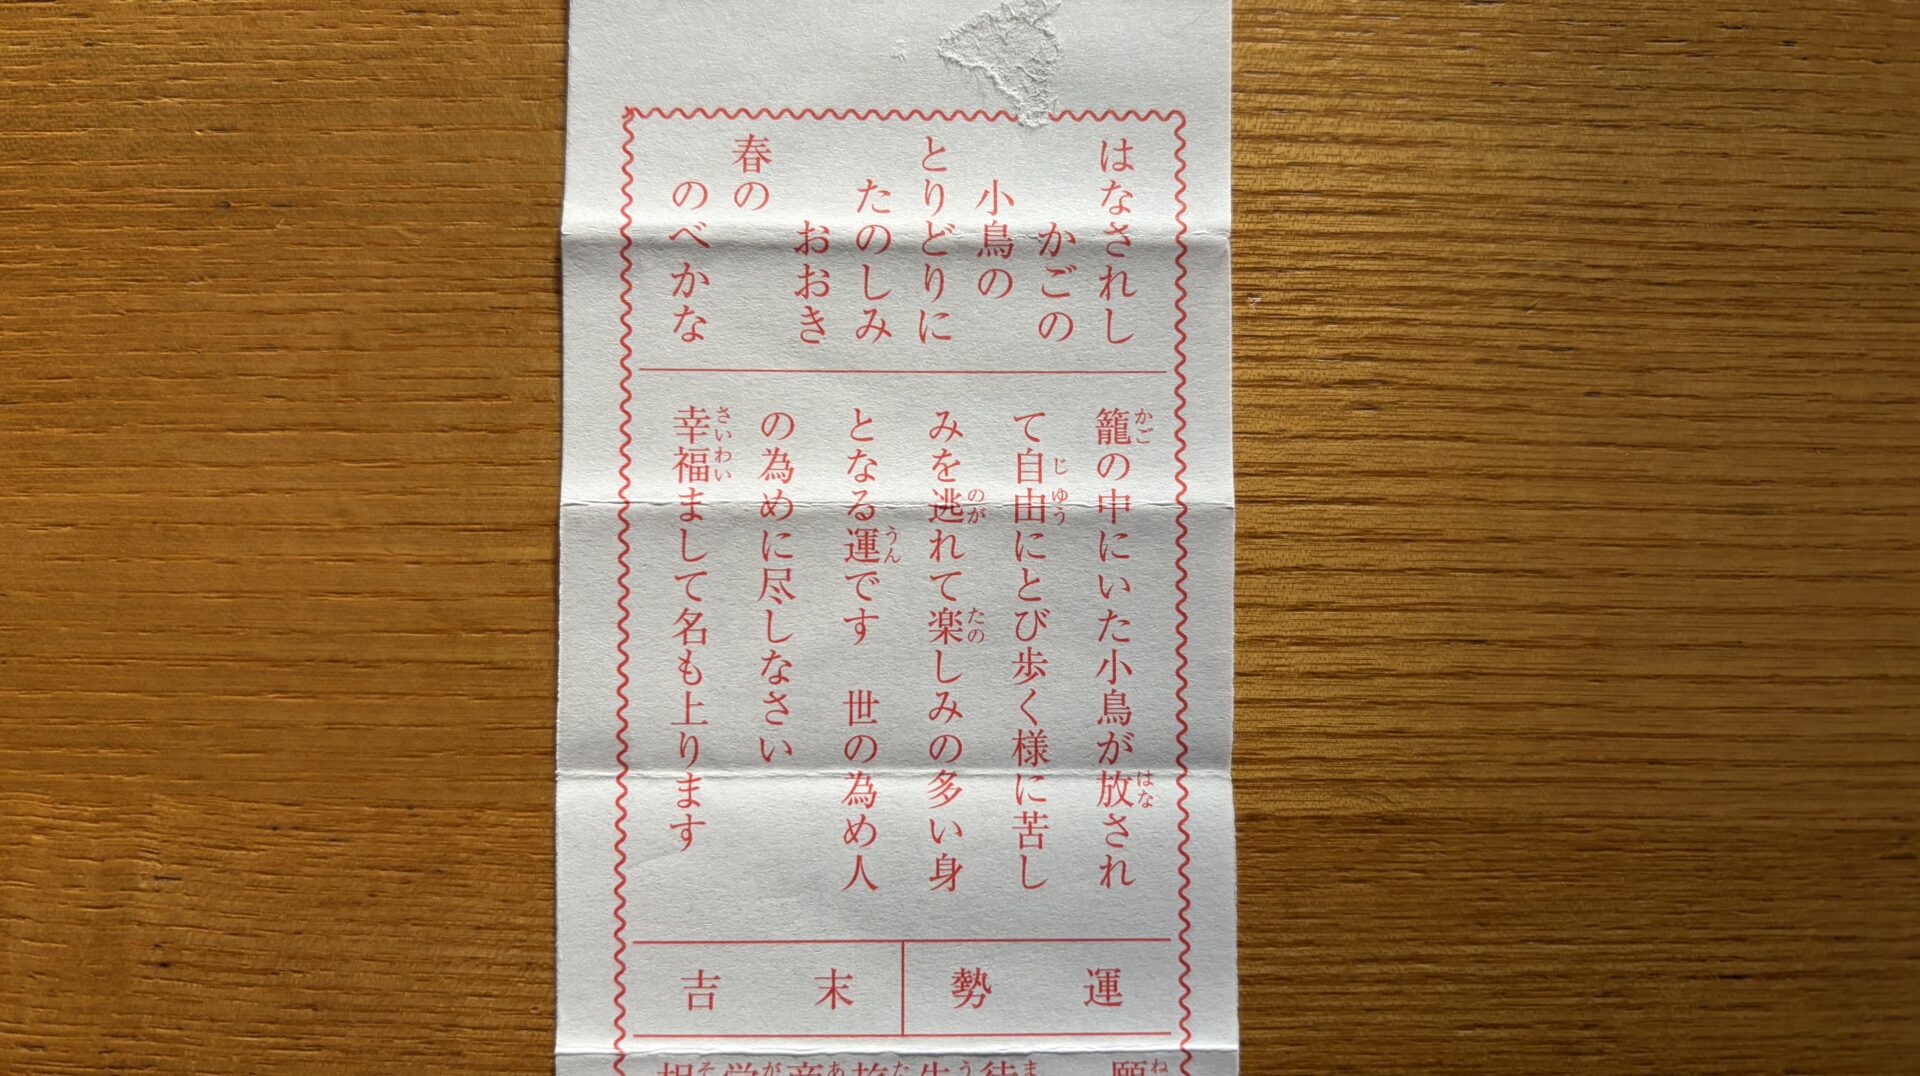 はなされし
かごの
小鳥の
とりどりに
たのしみ
おおき
春の
のべかな
籠の中にいた小鳥が放され
て自由にとび歩く様に苦し
みを逃れて楽しみの多い身
となる運です　世の為め人
の為めに尽しなさい
幸福まして名も上ります
運勢
末吉